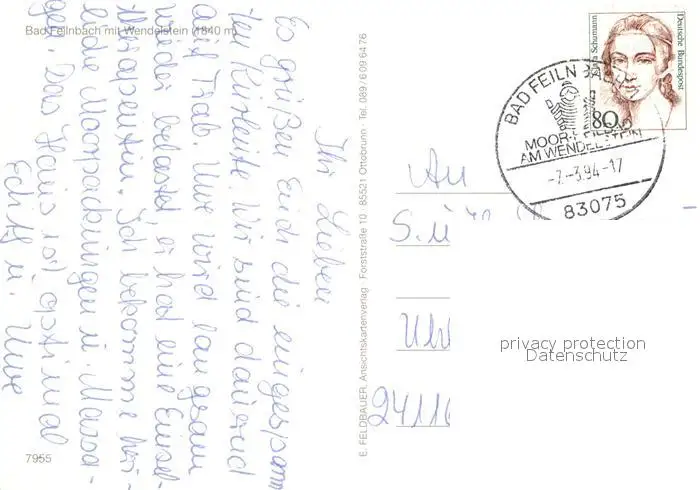 Bad Feilnbach mit Wendelstein (1840 m)
Ihr Lieben
Es grüßen Euch die eingespann
ten Kurleute. Wir sind dauernd
auf Trab. Uwe wird langsam
wieder belastet, er hat eine Einzel-
therapeutin. Ich bekomme bei-
de Moorpackungen u. Massa-
gen. Das Haus ist optimal
Edith u. Uwe
7955
E. FELDBAUER, Ansichtskartenverlag · Forststraße 10 · 85521 Ottobrunn · Tel. 089/6 09 64 76
Clara Schumann
Deutsche Bundespost
80
BAD FEILNBACH
MOOR-HEILBAD
AM WENDELSTEIN
-7.-3.94-17
83075
An
S. u
Uh
24116
privacy protection
Datenschutz